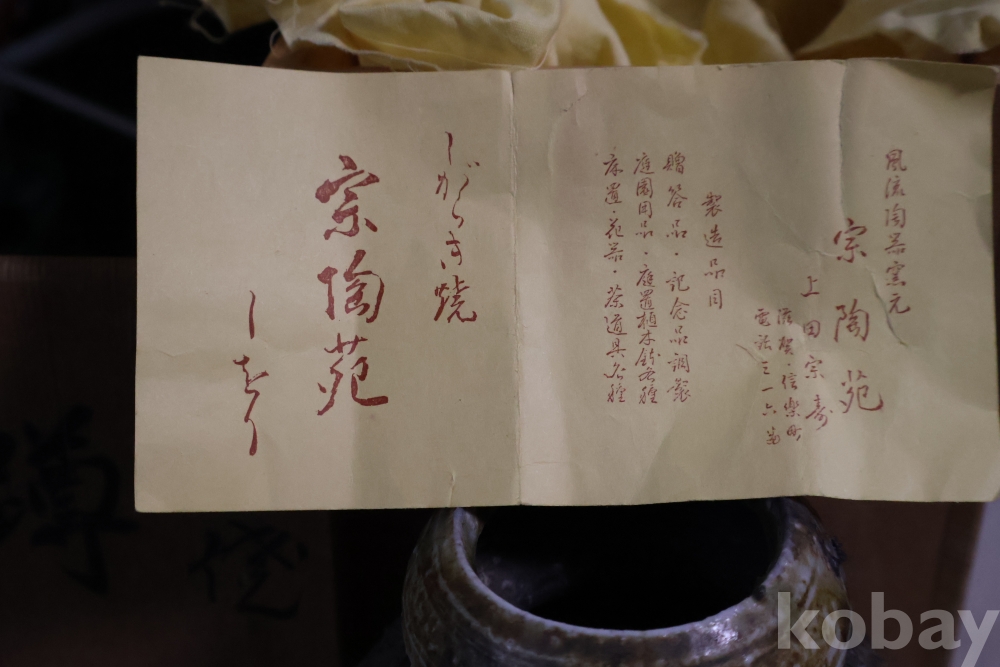 風流陶器窯元
宗陶苑
上田宗寿
滋賀・信楽町
電話三一六番
製造品目
贈答品・記念品調製
庭園用品・庭置植木鉢各種
床置・花器・茶道具各種
しがらき焼
宗陶苑
しをり
kobay